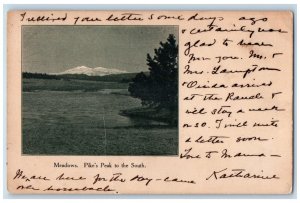 I received your letter some days ago
& certainly was
glad to hear
from you. Mr. &
Mrs. Lamptom
& Ouida arrived
at the Ranch &
will stay a week
or so. I will write
a better soon.
Love to Mama—
Katharine
Meadows. Pike's Peak to the South.
We are here for the day - came
over horseback.